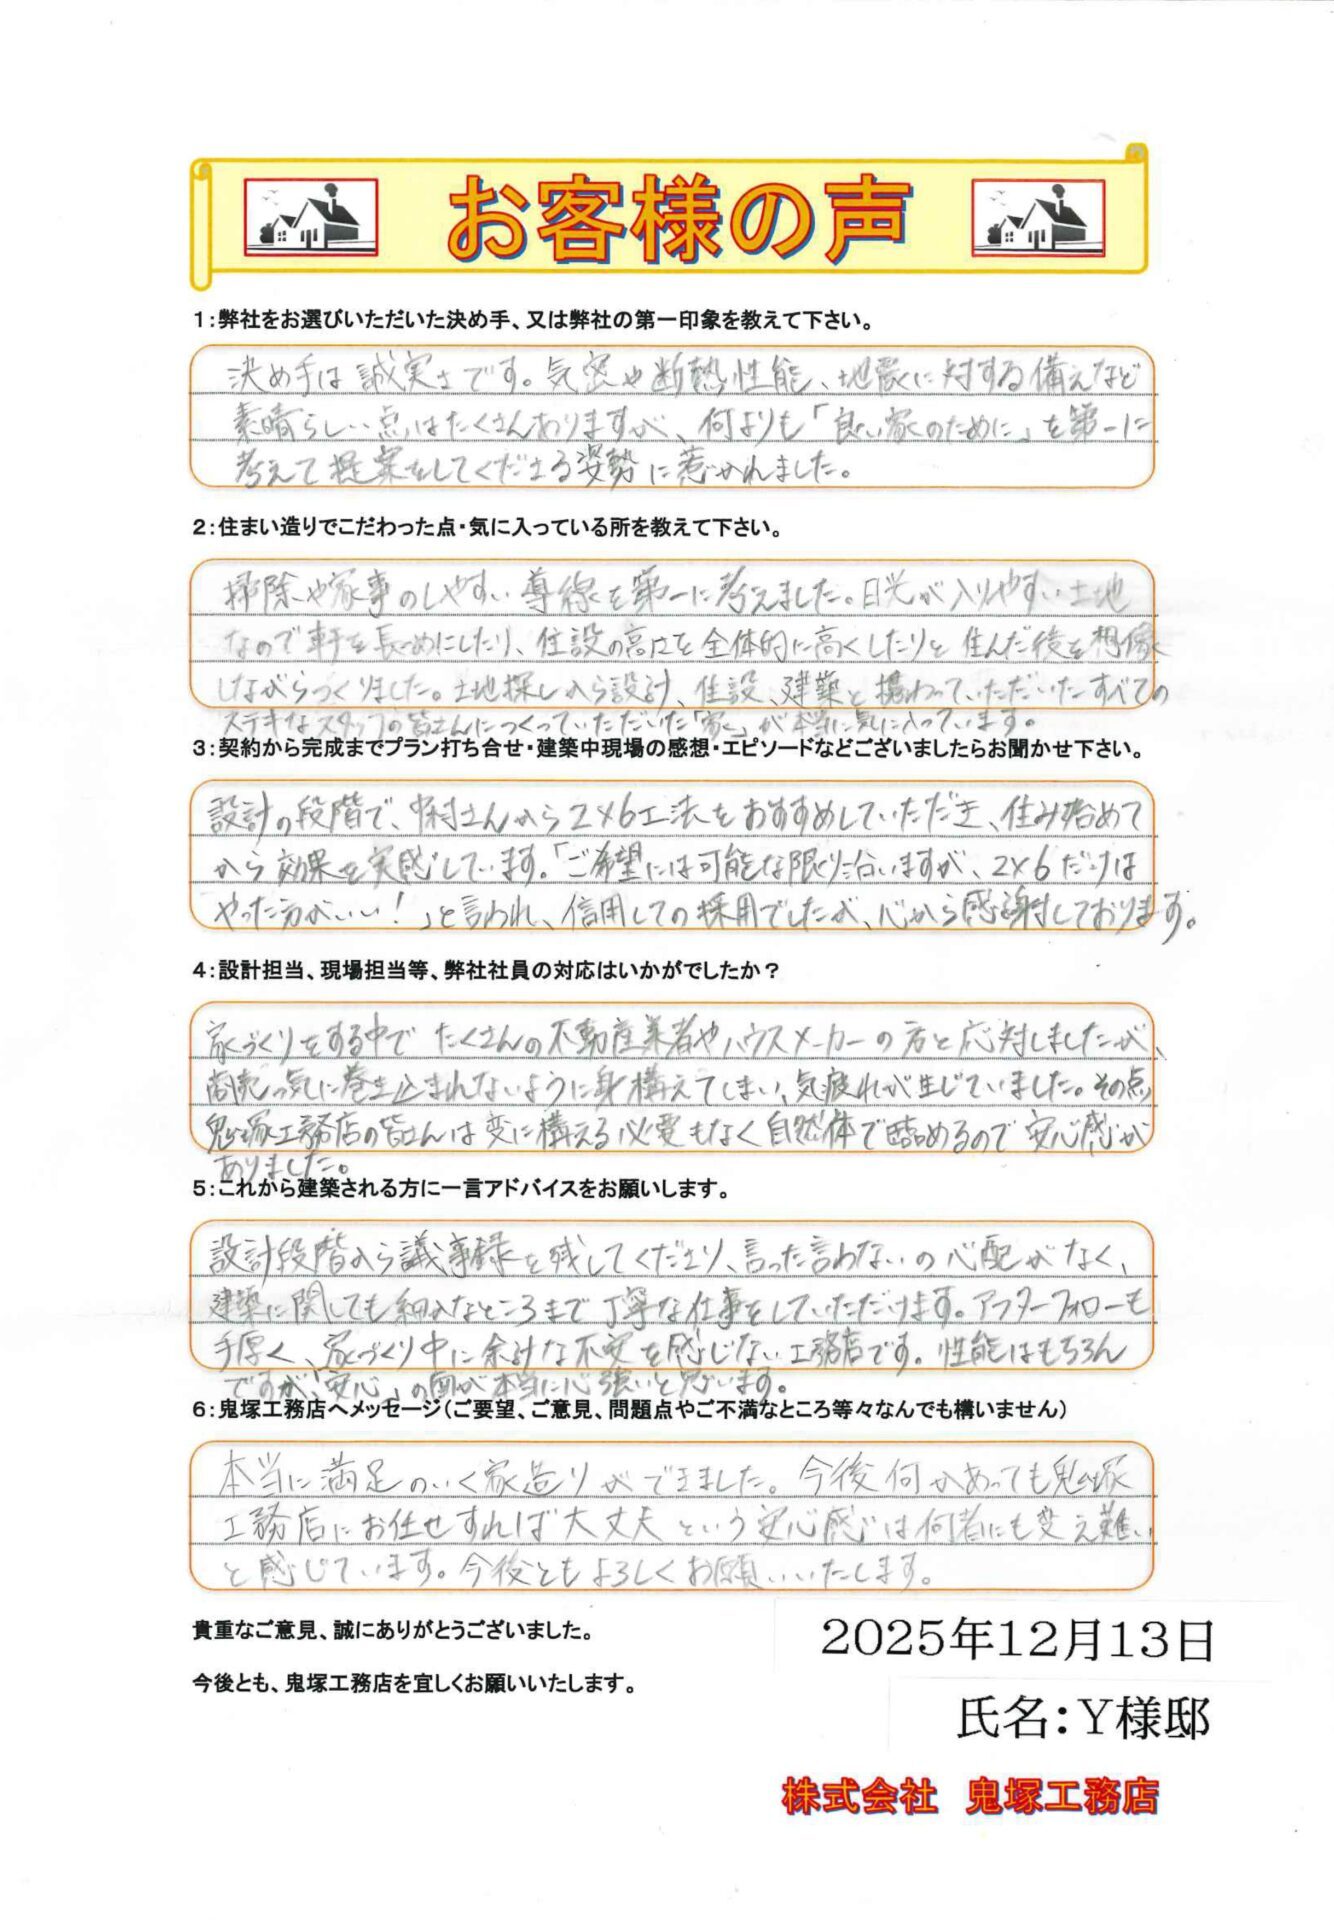 お客様の声
1：弊社をお選びいただいた決め手、又は弊社の第一印象を教えて下さい。
決め手は誠実さです。気密や断熱性能、地震に対する備えなど
素晴らしい点はたくさんありますが、何よりも「良い家のために」を第一に
考えて提案をしてくださる姿勢に惹かれました。
2：住まい造りでこだわった点・気に入っている所を教えて下さい。
掃除や家事のしやすい導線を第一に考えました。日光が入りやすい土地
なので軒を長めにしたり、住設の高さを全体的に高くしたりと住んだ後を想像
しながらつくりました。土地探しから設計、住設、建築と携わっていただいたすべての
ステキなスタッフの皆さんにつくっていただいた「家」が本当に気に入っています。
3：契約から完成までプラン打ち合せ・建築中現場の感想・エピソードなどございましたらお聞かせ下さい。
設計の段階で、中村さんから2×6工法をおすすめしていただき、住み始めて
から効果を実感しています。「ご希望には可能な限り沿いますが、2×6だけは
やった方がいい！」と言われ、信用しての採用でしたが、心から感謝しております。
4：設計担当、現場担当等、弊社社員の対応はいかがでしたか？
家づくりをする中でたくさんの不動産業者やハウスメーカーの方と応対しましたが、
商売っ気に巻き込まれないように身構えてしまい、気疲れが生じていました。その点
鬼塚工務店の皆さんは変に構える必要もなく自然体で話めるので安心感が
ありました。
5：これから建築される方に一言アドバイスをお願いします。
設計段階から議事録を残してくださり、言った言わないの心配がなく、
建築に関しても細かなところまで丁寧な仕事をしていただけます。アフターフォローも
手厚く、家づくり中に余計な不安を感じない工務店です。性能はもちろん
ですが、「安心」の面が本当に心強いと思います。
6：鬼塚工務店へメッセージ（ご要望、ご意見、問題点やご不満なところ等々なんでも構いません）
本当に満足のいく家造りができました。今後何かあっても鬼塚
工務店にお任せすれば大丈夫という安心感は何者にも変え難い
と感じています。今後ともよろしくお願いいたします。
貴重なご意見、誠にありがとうございました。
2025年12月13日
今後とも、鬼塚工務店を宜しくお願いいたします。
氏名：Y様邸
株式会社 鬼塚工務店